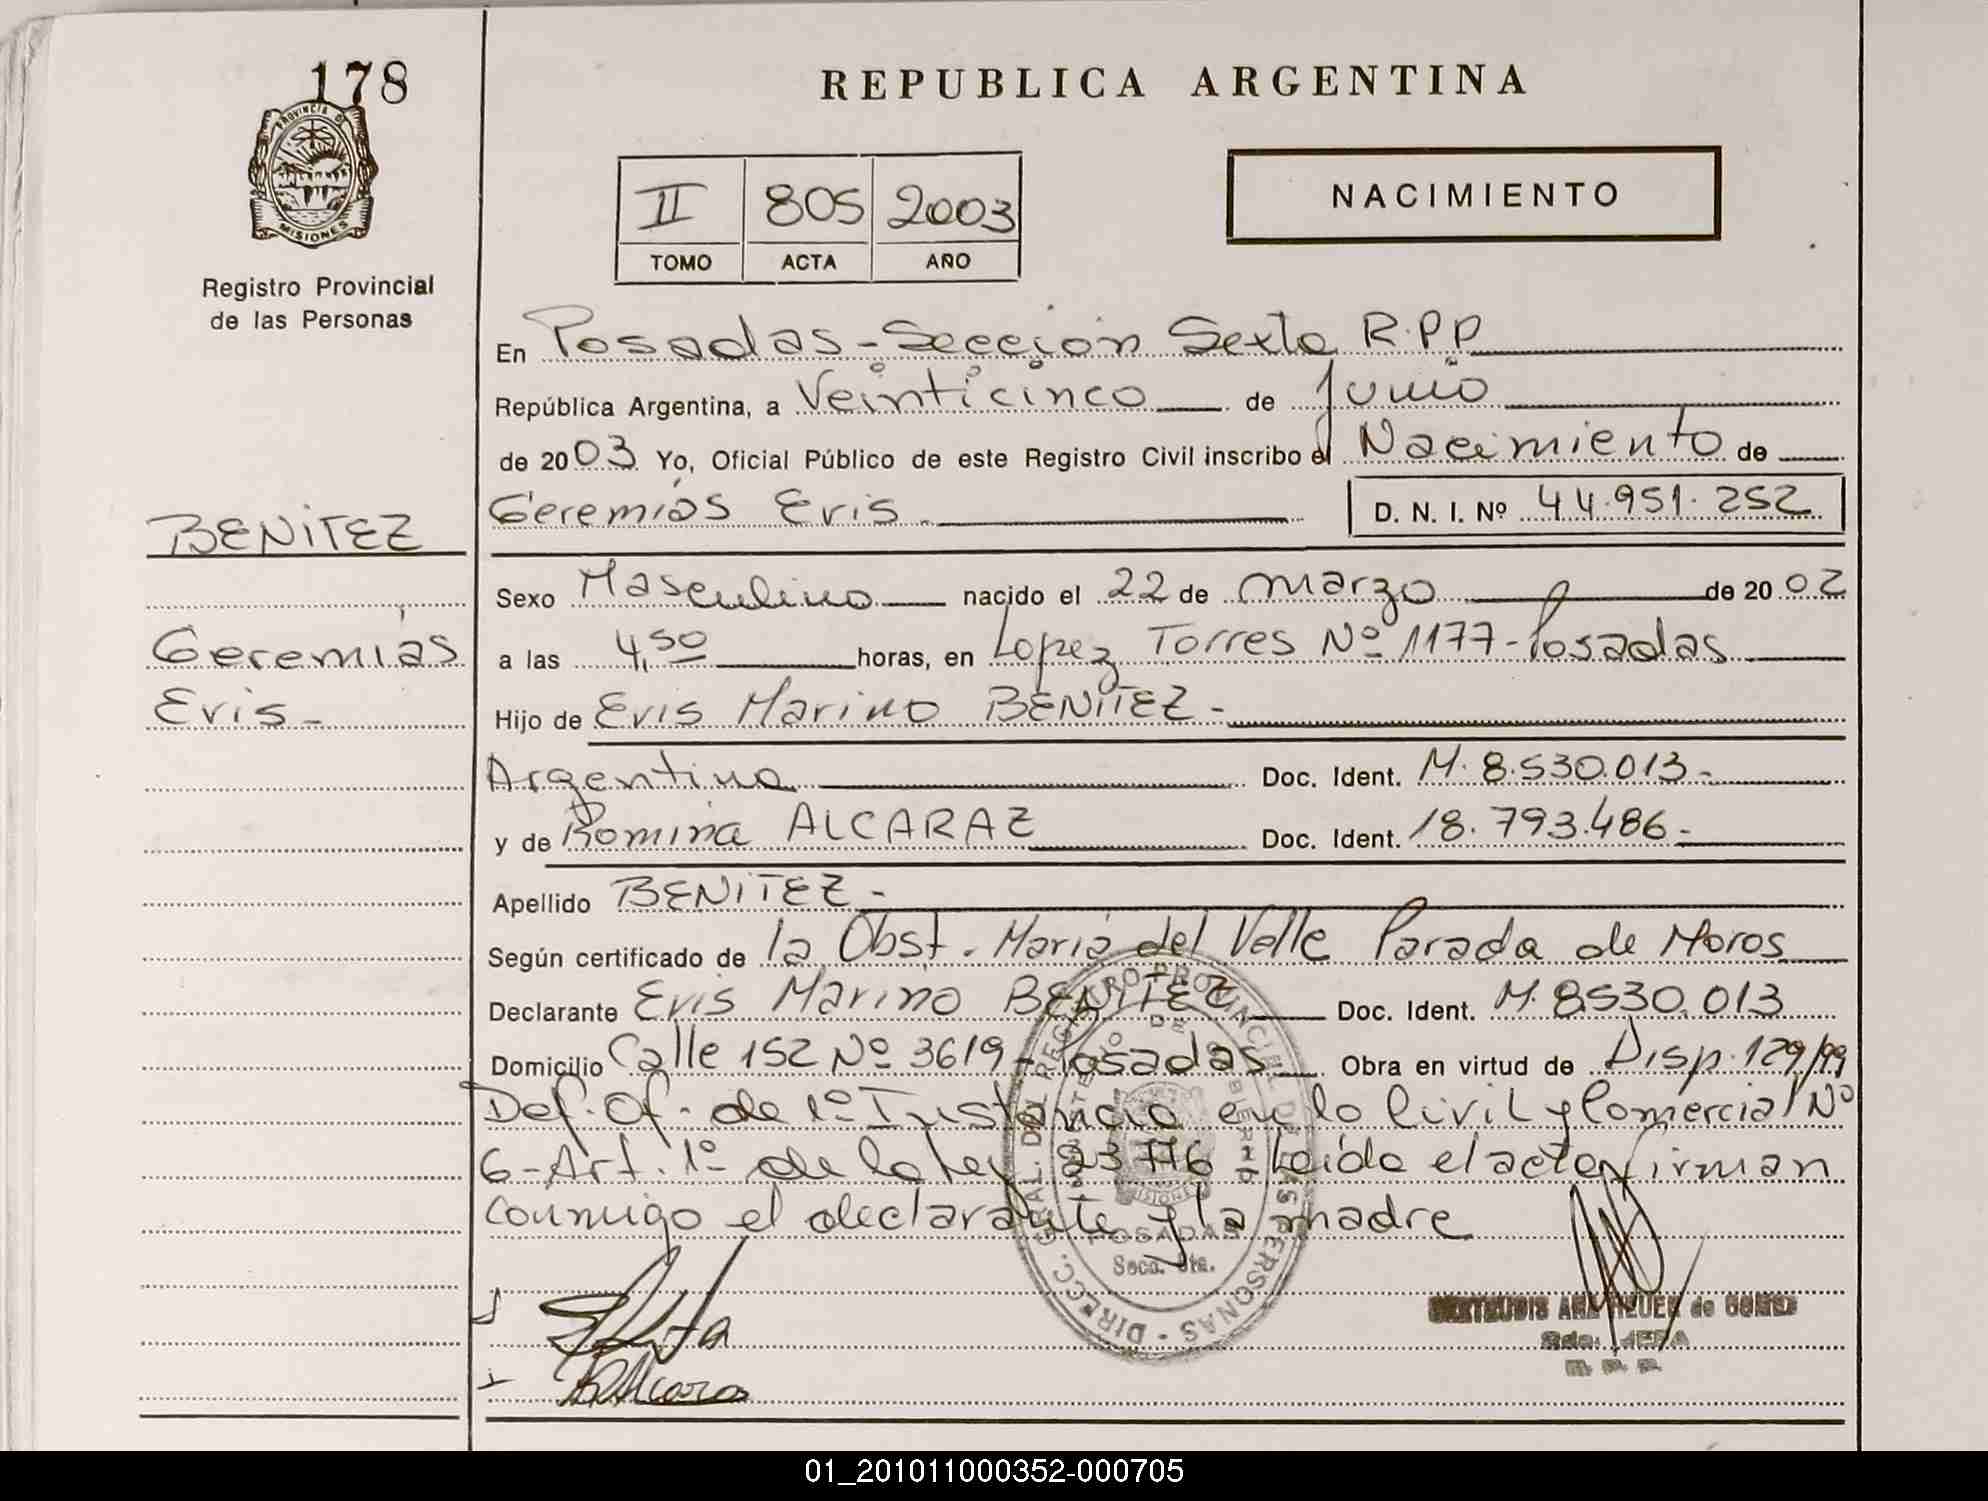 178
PROVINCIA DE
MISIONES
Registro Provincial
de las Personas
BENITEZ
Geremiás
Eris -
REPUBLICA ARGENTINA
II 805 2003
TOMO ACTA AÑO
NACIMIENTO
En Posadas - Sección Sexta R.P.P
República Argentina, a Veinticinco de Junio
de 2003 Yo, Oficial Público de este Registro Civil inscribo el Nacimiento de
Geremiás Eris. D. N. I. Nº 44.951.252
Sexo Masculino nacido el 22 de marzo de 2002
a las 4,50 horas, en Lopez Torres Nº 1177 - Posadas
Hijo de Eris Marino BENITEZ -
Argentino Doc. Ident. M. 8.530.013 -
y de Romina ALCARAZ Doc. Ident. 18.793.486 -
Apellido BENITEZ -
Según certificado de la Obst. María del Valle Parada de Moros
Declarante Eris Marino BENITEZ Doc. Ident. M. 8530.013
Domicilio Calle 152 Nº 3619 - Posadas Obra en virtud de Disp. 129/99
Def. Of. de 1º Instancia en lo Civil y Comercial Nº
6 - Art. 1º de la Ley 23776 - Leído el acta firman
conmigo el declarante y la madre
DIRECC. GRAL. DEL REGISTRO PROVINCIAL DE LAS PERSONAS
MINISTERIO DE GOBIERNO
MISIONES
POSADAS
Secc. 6ta.
de GOMEZ
JEFA
R. P. P.
01_201011000352-000705